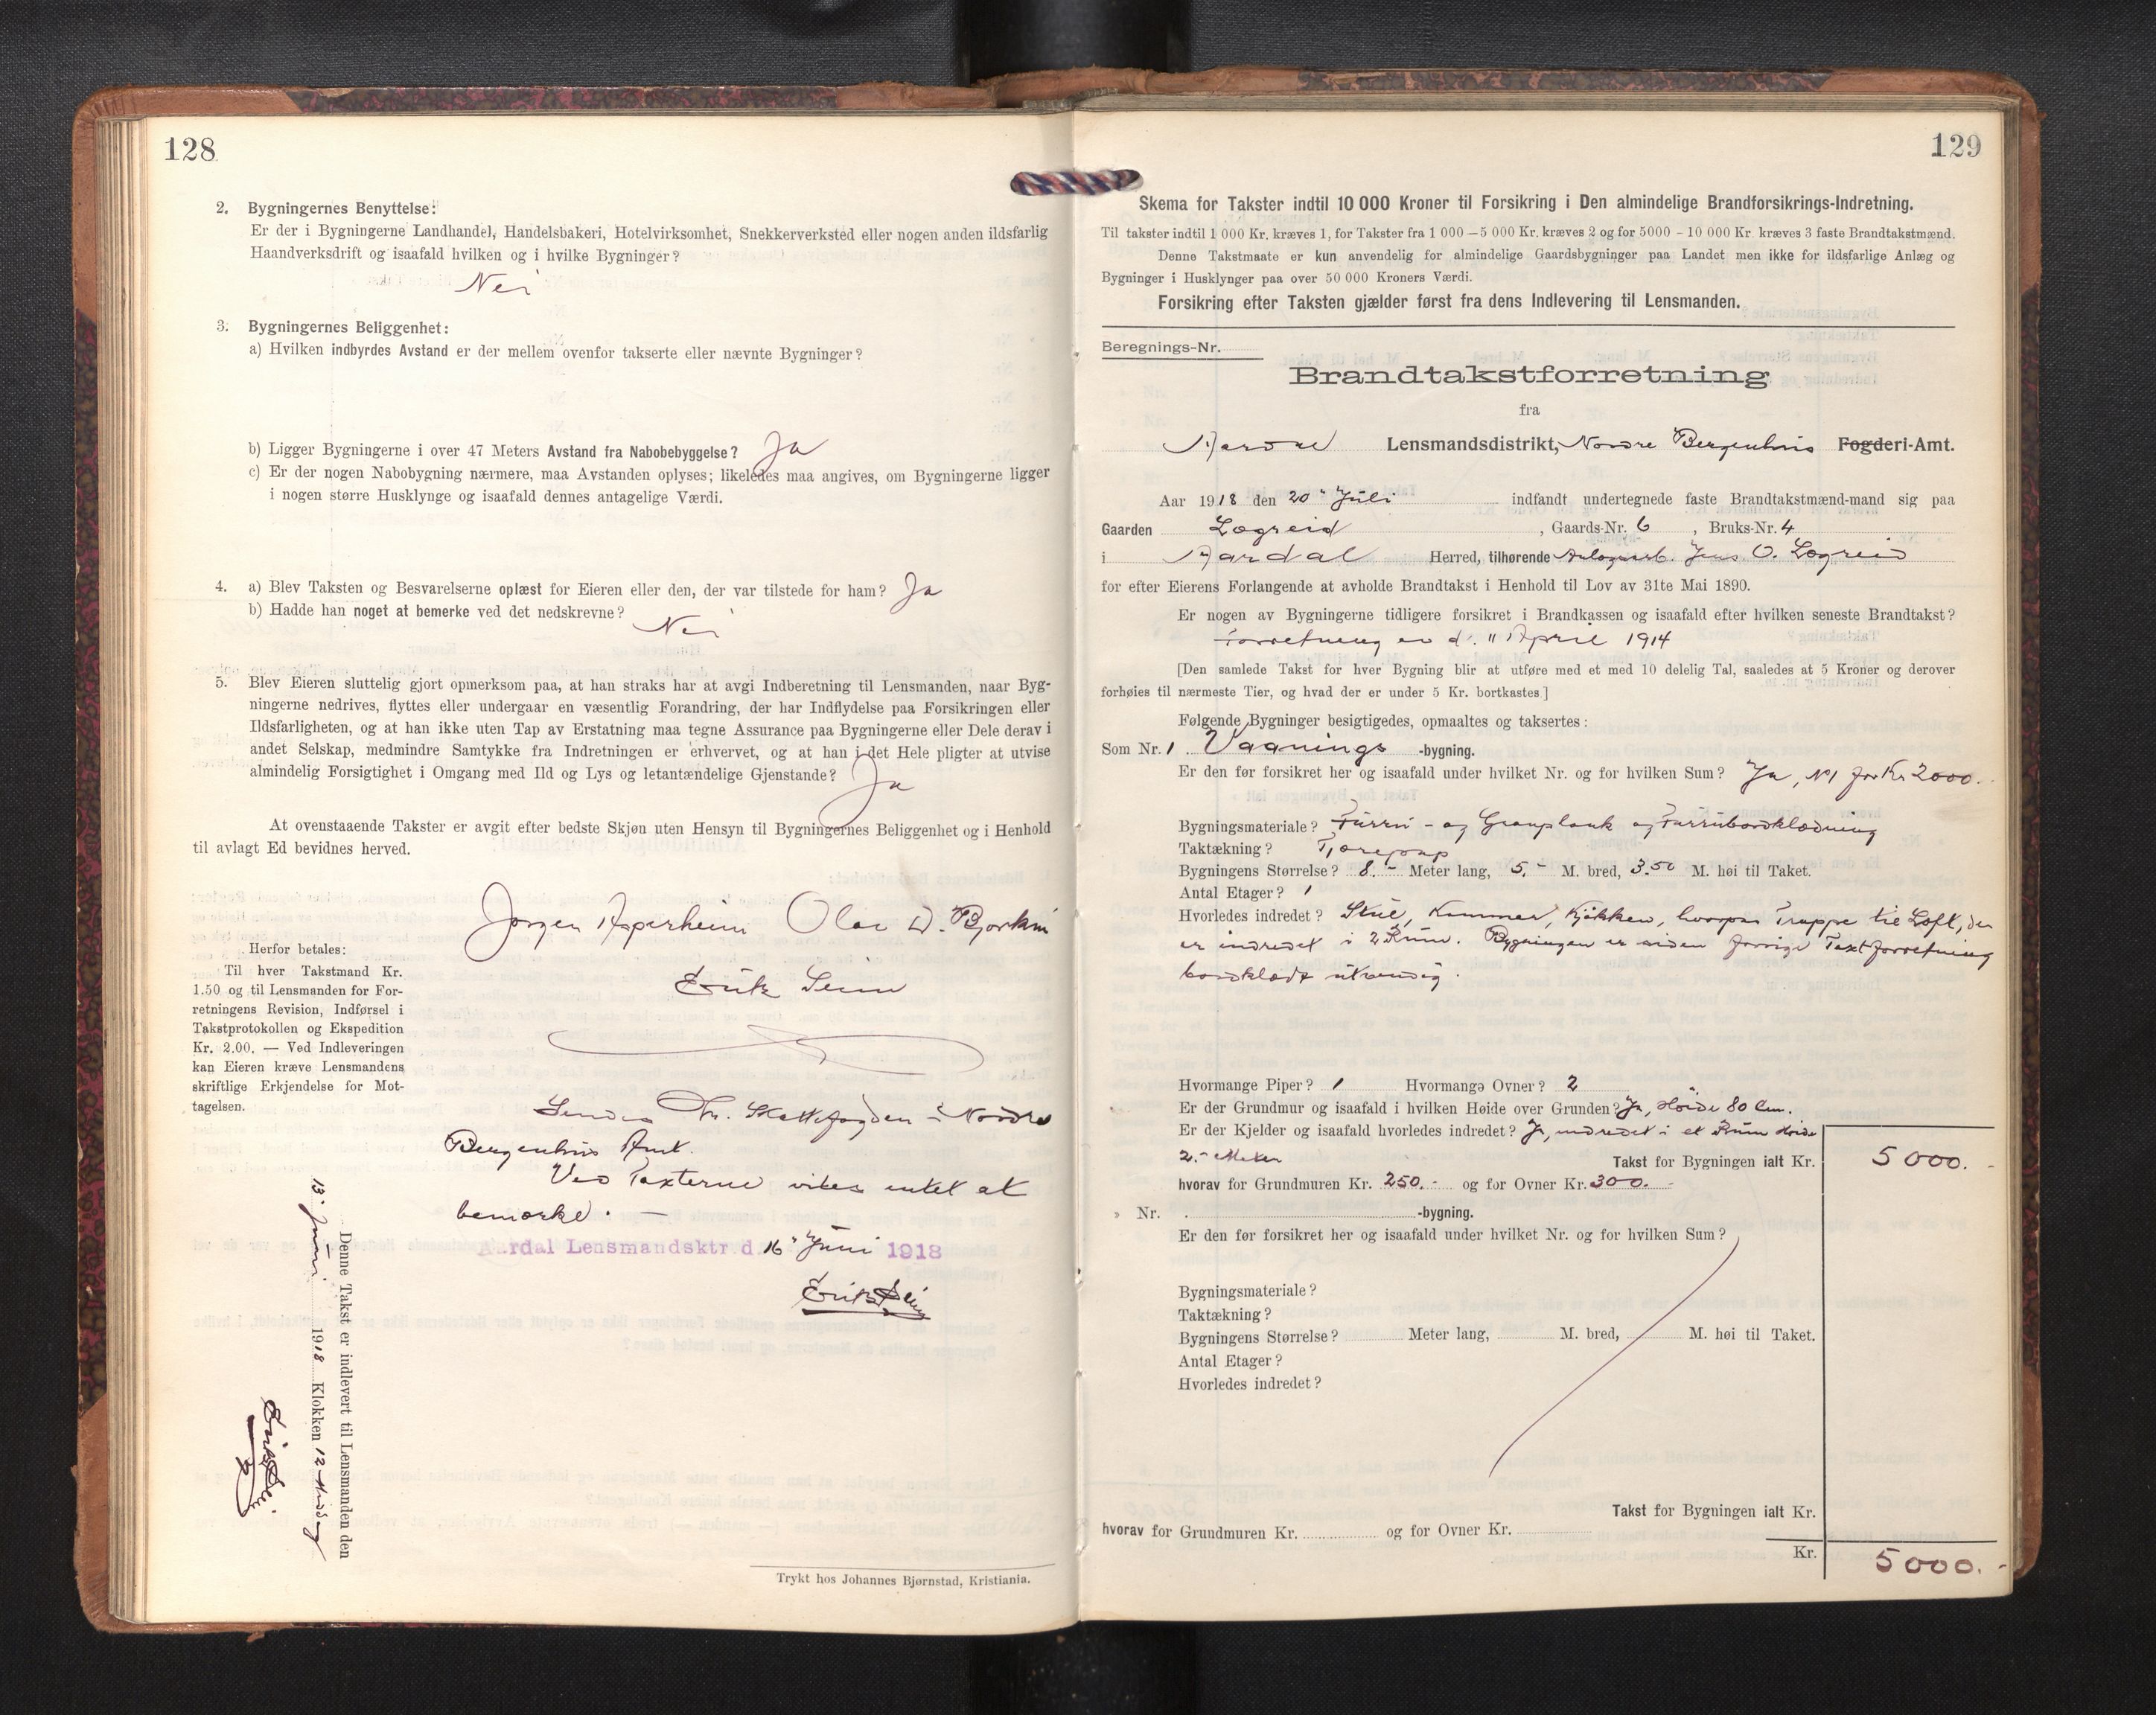 128
2. Bygningernes Benyttelse:
Er der i Bygningerne Landhandel, Handelsbakeri, Hotelvirksomhet, Snekkerverksted eller nogen anden ildsfarlig
Haandverksdrift og isaafald hvilken og i hvilke Bygninger?
Nei
3. Bygningernes Beliggenhet:
a) Hvilken indbyrdes Avstand er der mellem ovenfor takserte eller nævnte Bygninger?
b) Ligger Bygningerne i over 47 Meters Avstand fra Nabobebyggelse? Ja
c) Er der nogen Nabobygning nærmere, maa Avstanden oplyses; likeledes maa angives, om Bygningerne ligger
i nogen større Husklynge og isaafald dennes antagelige Værdi.
4. a) Blev Taksten og Besvarelserne oplæst for Eieren eller den, der var tilstede for ham? Ja
b) Hadde han noget at bemerke ved det nedskrevne?
Nei
5. Blev Eieren sluttelig gjort opmerksom paa, at han straks har at avgi Indberetning til Lensmanden, naar Byg-
ningerne nedrives, flyttes eller undergaar en væsentlig Forandring, der har Indflydelse paa Forsikringen eller
Ildsfarligheten, og at han ikke uten Tap av Erstatning maa tegne Assurance paa Bygningerne eller Dele derav i
andet Selskap, medmindre Samtykke fra Indretningen er erhvervet, og at han i det Hele pligter at utvise
almindelig Forsigtighet i Omgang med Ild og Lys og letantændelige Gjenstande? Ja
At ovenstaaende Takster er avgit efter bedste Skjøn uten Hensyn til Bygningernes Beliggenhet og i Henhold
til avlagt Ed bevidnes herved.
Jørgen Asperheim Olav D.
Erik Seim
Herfor betales:
Til hver Takstmand Kr.
1.50 og til Lensmanden for For-
retningens Revision, Indførsel i
Takstprotokollen og Ekspedition
Kr. 2.00. — Ved Indleveringen
kan Eieren kræve Lensmandens
skriftlige Erkjendelse for Mot-
tagelsen.
Sendes Hr. Skattefogden i Nordre
Bergenhus Amt.
Ved Taxterne vites intet at
bemærke. —
Aardal Lensmandsktr. d. 16' Juni 1918
Erik Seim
Denne Takst er indlevert til Lensmanden den
13' Juni 1918 Klokken 12 Middag
Erik Seim
Trykt hos Johannes Bjørnstad, Kristiania.
129
Skema for Takster indtil 10 000 Kroner til Forsikring i Den almindelige Brandforsikrings-Indretning.
Til takster indtil 1 000 Kr. kræves 1, for Takster fra 1 000 – 5 000 Kr. kræves 2 og for 5000 – 10 000 Kr. kræves 3 faste Brandtakstmænd.
Denne Takstmaate er kun anvendelig for almindelige Gaardsbygninger paa Landet men ikke for ildsfarlige Anlæg og
Bygninger i Husklynger paa over 50 000 Kroners Værdi.
Forsikring efter Taksten gjælder først fra dens Indlevering til Lensmanden.
Beregnings-Nr.
Brandtakstforretning
fra
Aardal Lensmandsdistrikt, Nordre Bergenhus Fogderi-Amt.
Aar 1918 den 20' Juli indfandt undertegnede faste Brandtakstmænd-mand sig paa
Gaarden Lægreid, Gaards-Nr. 6, Bruks-Nr. 4
i Aardal Herred, tilhørende Anlægsarb. Jens O. Lægreid
for efter Eierens Forlangende at avholde Brandtakst i Henhold til Lov av 31te Mai 1890.
Er nogen av Bygningerne tidligere forsikret i Brandkassen og isaafald efter hvilken seneste Brandtakst?
Forretning av d. 11 April 1914
[Den samlede Takst for hver Bygning blir at utføre med et med 10 delelig Tal, saaledes at 5 Kroner og derover
forhøies til nærmeste Tier, og hvad der er under 5 Kr. bortkastes]
Følgende Bygninger besigtigedes, opmaaltes og taksertes:
Som Nr. 1. Vaanings-bygning.
Er den før forsikret her og isaafald under hvilket Nr. og for hvilken Sum? Ja, N1 for Kr 2000.
Bygningsmateriale? Furru- og Granplank og Furrubordklædning
Taktækning? Tjærepap
Bygningens Størrelse? 8.- Meter lang, 5.- M. bred, 3.50 M. høi til Taket.
Antal Etager? 1
Hvorledes indredet? Stue, Kammer, Kjøkken, hvorpaa Trappe til Loft, der
er indredet i 2 Rum. Bygningen er siden forrige Taxtforretning
bordklædt utvendig.
Hvormange Piper? 1 Hvormange Ovner? 2
Er der Grundmur og isaafald i hvilken Høide over Grunden? Ja, Høide 80 Cm.
Er der Kjelder og isaafald hvorledes indredet? Ja, indredet i et Rum Høide
2.- Meter Takst for Bygningen ialt Kr. 5000.-
hvorav for Grundmuren Kr. 250.- og for Ovner Kr. 300.-
» Nr. -bygning.
Er den før forsikret her og isaafald under hvilket Nr. og for hvilken Sum?
Bygningsmateriale?
Taktækning?
Bygningens Størrelse? Meter lang, M. bred, M. høi til Taket.
Antal Etager?
Hvorledes indredet?
Takst for Bygningen ialt Kr.
hvorav for Grundmuren Kr. og for Ovner Kr.
Kr. 5000.-